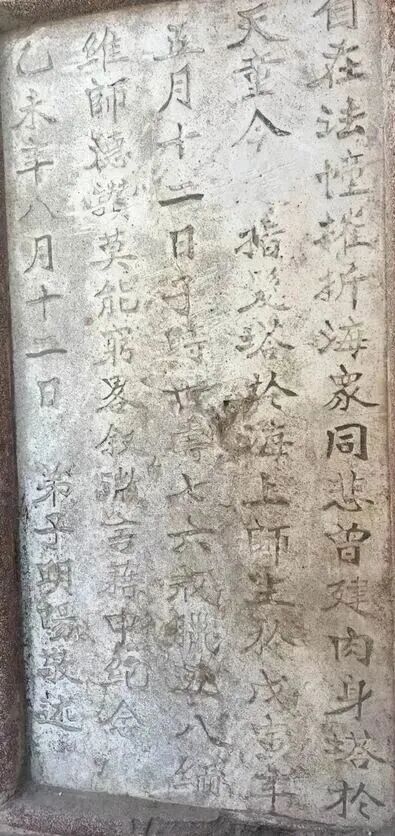 自在法幢摧折海衆同悲曽建肉身塔於
天童今 指髮塔於海上師生於戊寅年
五月十二日子時世壽七六戒臘五八編
維師德澤莫能窮畧叙數言藉申紀念
乙未年八月十二日 弟子明暘敬述